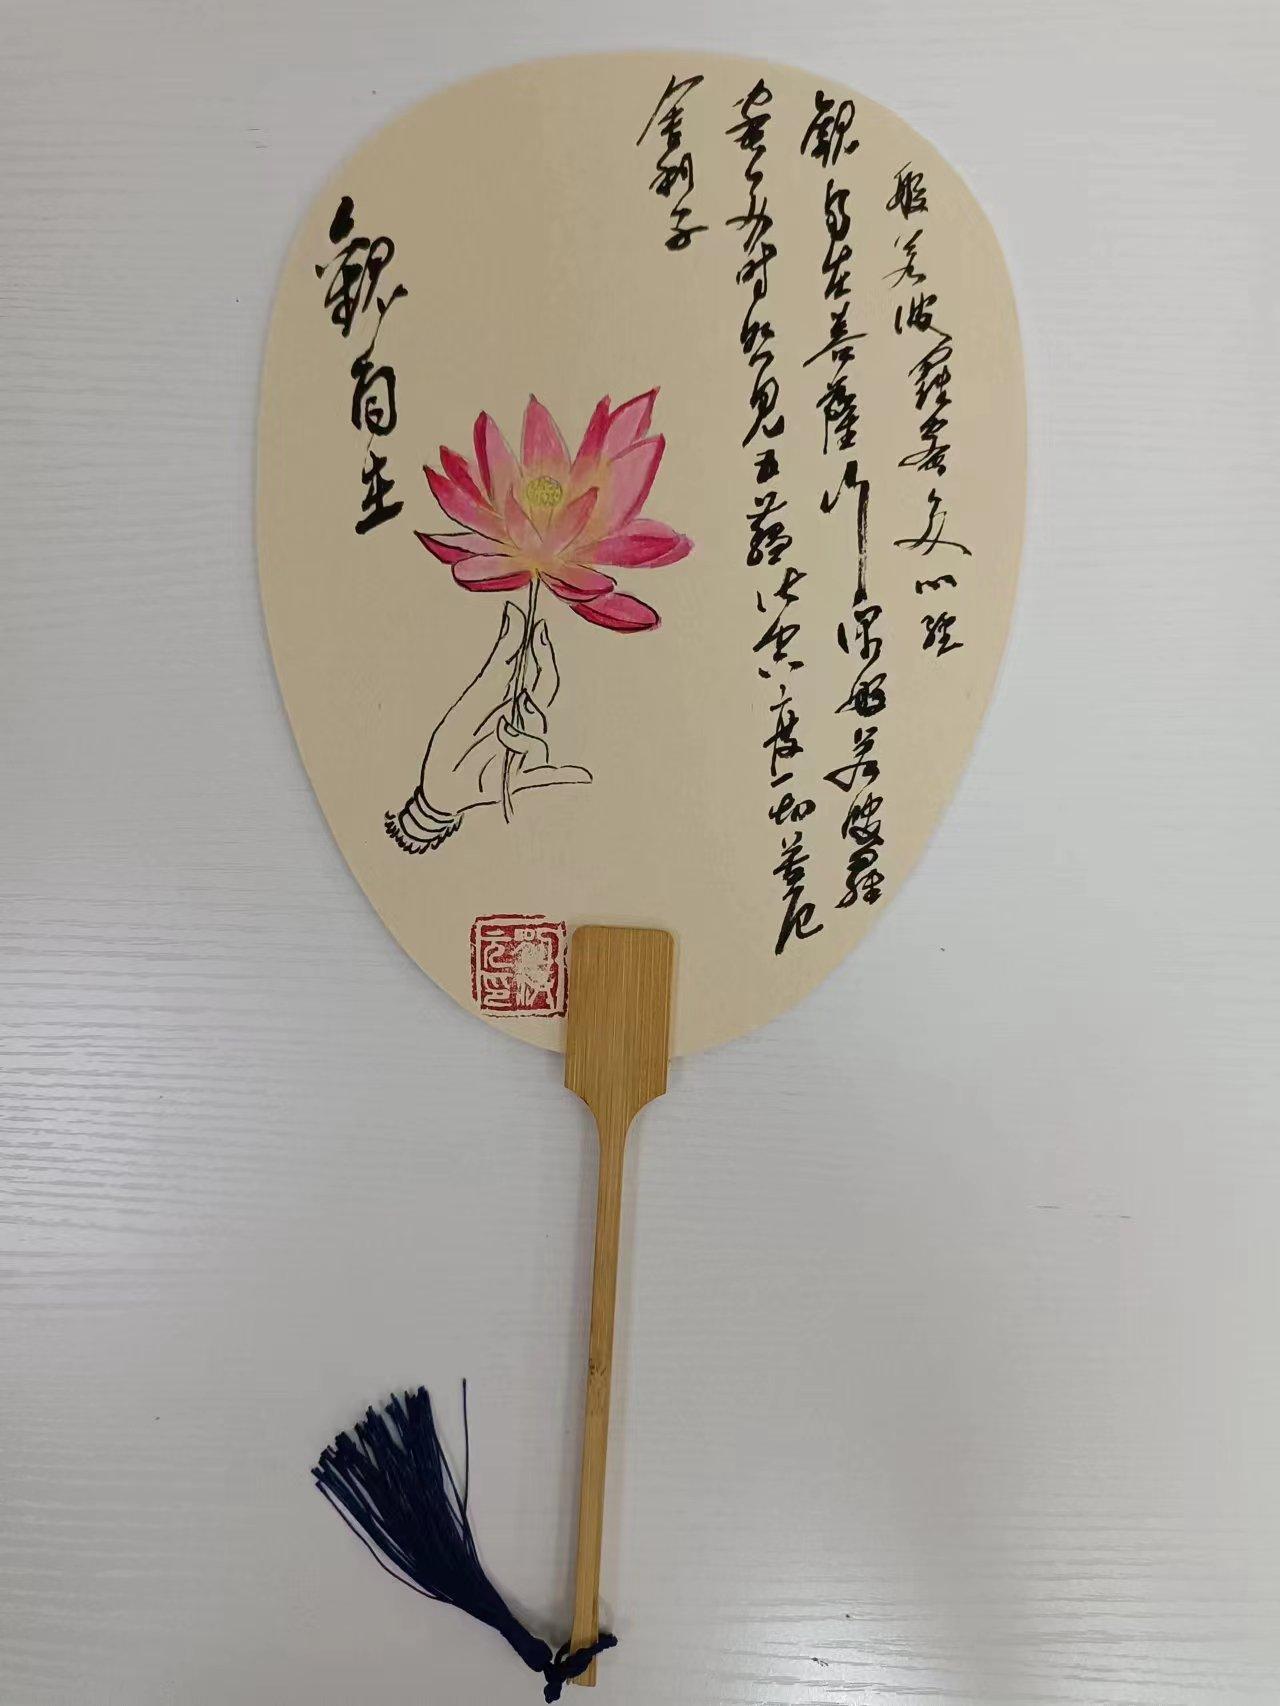 般若波羅蜜多心經
觀自在菩薩行深般若波羅
蜜多時照見五蘊皆空度一切苦厄
舍利子
觀自在